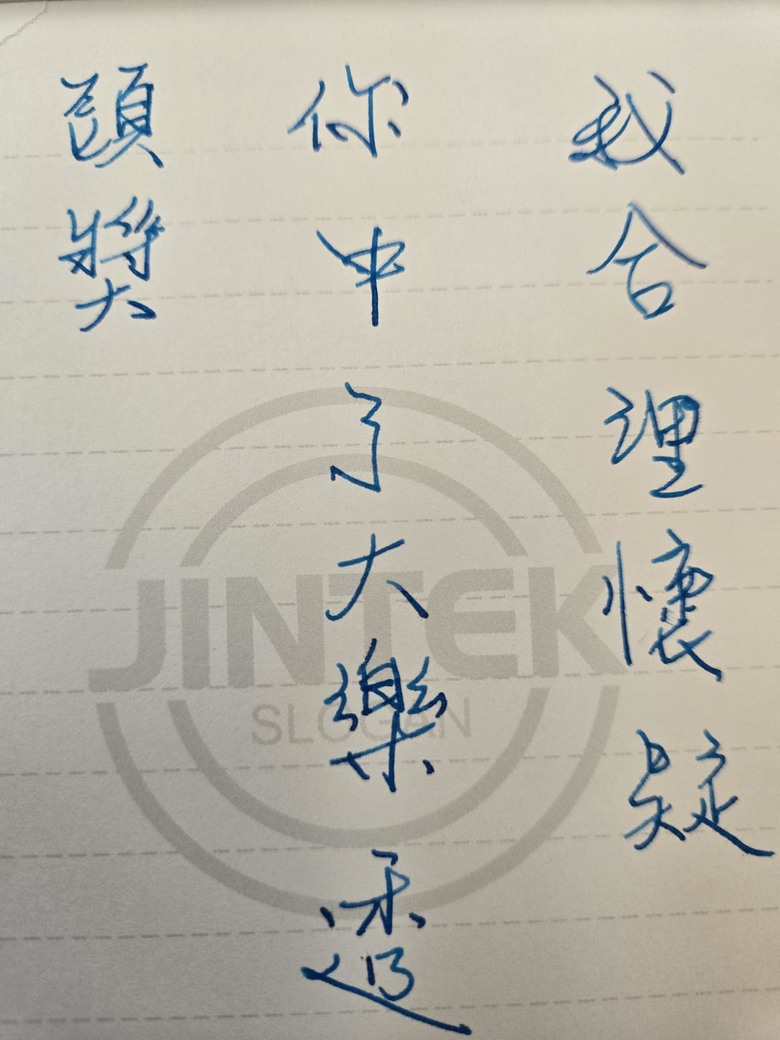 我合理懷疑
你中了大樂透
頭獎
JINTEK
SLOGAN